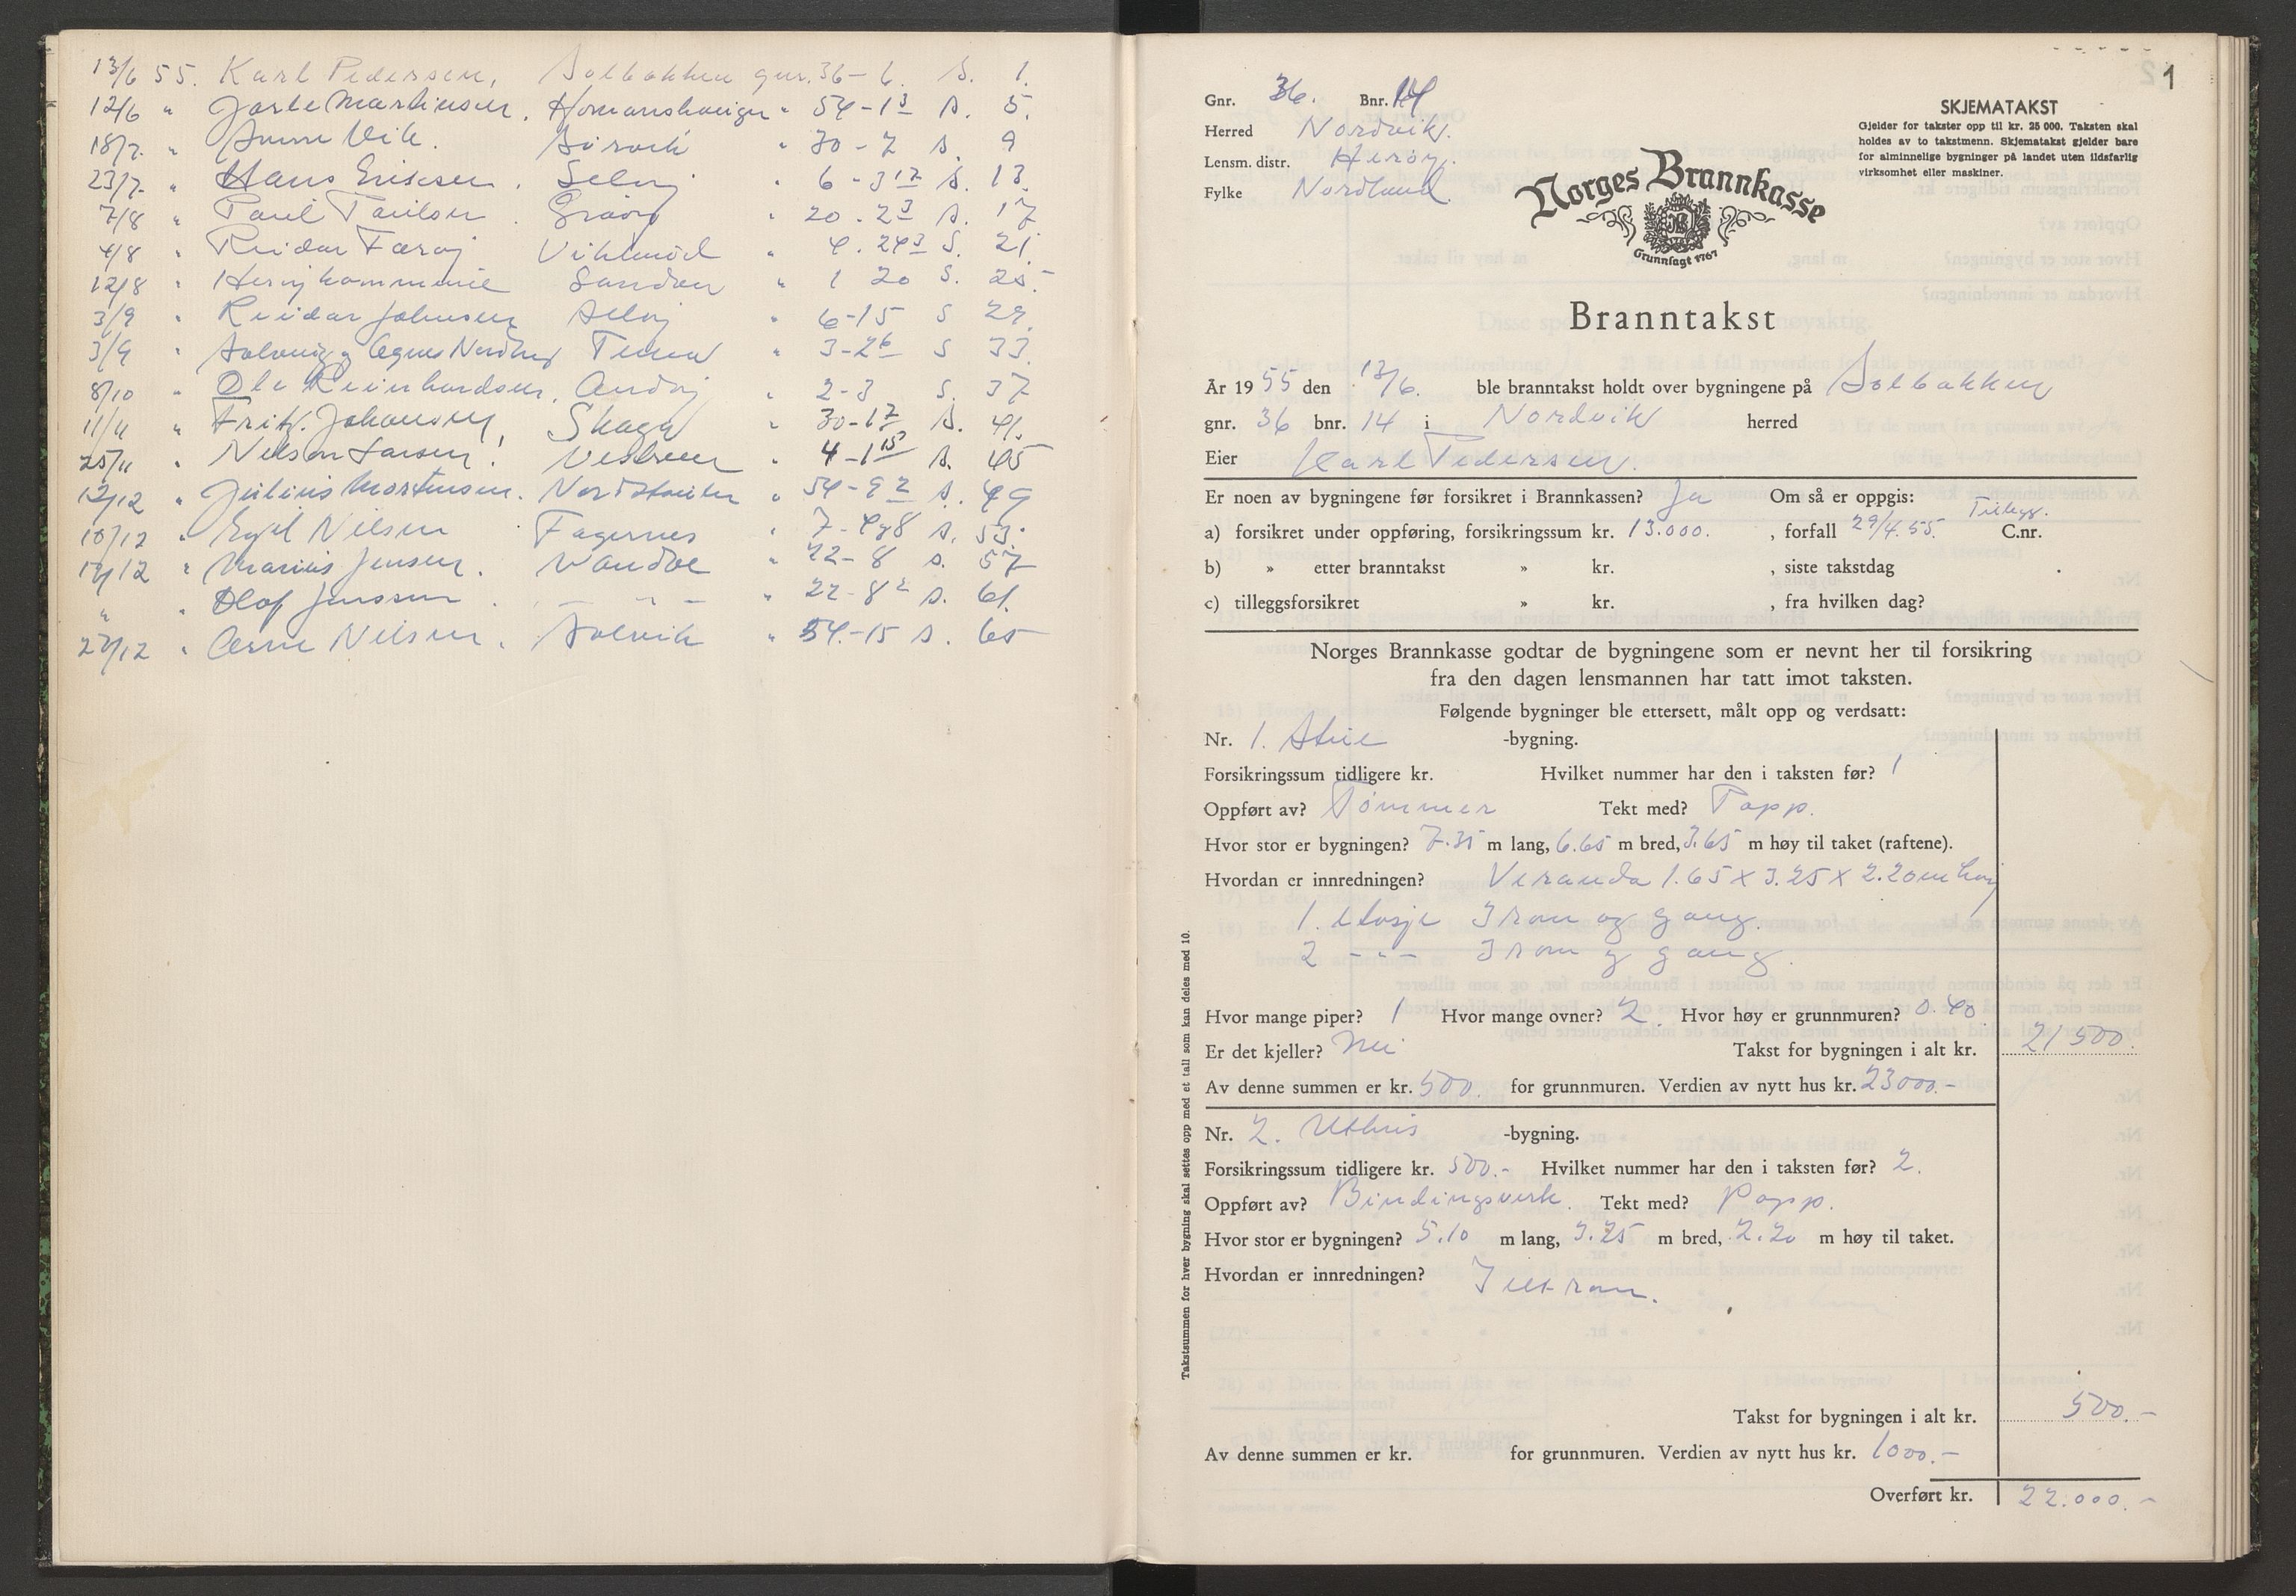 13/6 55. Karl Pedersen, Solbakken gnr. 36 - 6. S. 1.
12/6 " Jarle Martinsen. " 54 - 1 3 S. 5.
18/7. " Anna Vik. Sörvik " 30 - 7 S. 9
23/7. " Hans Eriksen. Selöy " 6 - 3 17 S. 13.
7/8 " Paul Paulsen. " 20 - 2 3 S. 17
4/8 " Reidar Færøy " 4. 24 3 S. 21.
12/8 " Herøy kommune Sanden " 1 20 S. 25.
3/9 " Reidar Johnsen Selöy " 6-15 S 29.
3/9 " Solveig og Agnes Tenna " 3-26 S 33.
8/10 " Ole Reinhardsen, Andöy " 2-3 S. 37
11/11 " Fritz Johansen, Skaga " 30-17 S. 41.
25/11 " Nelson Larsen. " 4-1 15 S. 45
12/12 " Julius Mortensen. " 54-9 2 S. 49
10/12 " Egil Nilsen Fagernes " 7-4 og 8 S. 53.
17/12 " Marius Jensen. Vandve " 22-8 S. 57
" " Olof Jenssen. - " - " 22-8 2 S. 61.
27/12 " Arne Nilsen. Solvik " 54.-15 S. 65
1
Gnr. 36. Bnr. 14
Herred Nordvik.
Lensm. distr. Herøy.
Fylke Nordland.
SKJEMATAKST
Gjelder for takster opp til kr. 25 000. Taksten skal
holdes av to takstmenn. Skjematakst gjelder bare
for alminnelige bygninger på landet uten ildsfarlig
virksomhet eller maskiner.
Norges Brannkasse
Grunnlagt 1767
Branntakst
År 1955 den 13/6. ble branntakst holdt over bygningene på Solbakken
gnr. 36 bnr. 14 i Nordvik herred
Eier Karl Pedersen.
Er noen av bygningene før forsikret i Brannkassen? Ja Om så er oppgis:
Tillegg.
a) forsikret under oppføring, forsikringssum kr. 13.000. , forfall 29/4.55. C.nr.
b) » etter branntakst » kr. , siste takstdag
c) tilleggsforsikret » kr. , fra hvilken dag?
Norges Brannkasse godtar de bygningene som er nevnt her til forsikring
fra den dagen lensmannen har tatt imot taksten.
Følgende bygninger ble ettersett, målt opp og verdsatt:
Nr. 1. Stue -bygning.
Forsikringssum tidligere kr. Hvilket nummer har den i taksten før? 1
Oppført av? Tömmer Tekt med? Papp.
Hvor stor er bygningen? 7.35 m lang, 6.65 m bred, 3.65 m høy til taket (raftene).
Hvordan er innredningen? Veranda 1.65 x 3.25 x 2.20 m høy
1. etasje 3 rom og gang.
2 - " - 3 rom og gang.
Hvor mange piper? 1 Hvor mange ovner? 2. Hvor høy er grunnmuren? 0.40
Er det kjeller? Nei Takst for bygningen i alt kr. 21500.
Av denne summen er kr. 500. for grunnmuren. Verdien av nytt hus kr. 23000.-
Nr. 2. Uthus -bygning.
Forsikringssum tidligere kr. 500.- Hvilket nummer har den i taksten før? 2.
Oppført av? Bindingsverk. Tekt med? Papp.
Hvor stor er bygningen? 5.10 m lang, 3.25 m bred, 2.20 m høy til taket.
Hvordan er innredningen? I ett rom.
Takst for bygningen i alt kr. 500.-
Av denne summen er kr. for grunnmuren. Verdien av nytt hus kr. 1000.-
Overført kr. 22.000.-
Takstsummen for hver bygning skal settes opp med et tall som kan deles med 10.